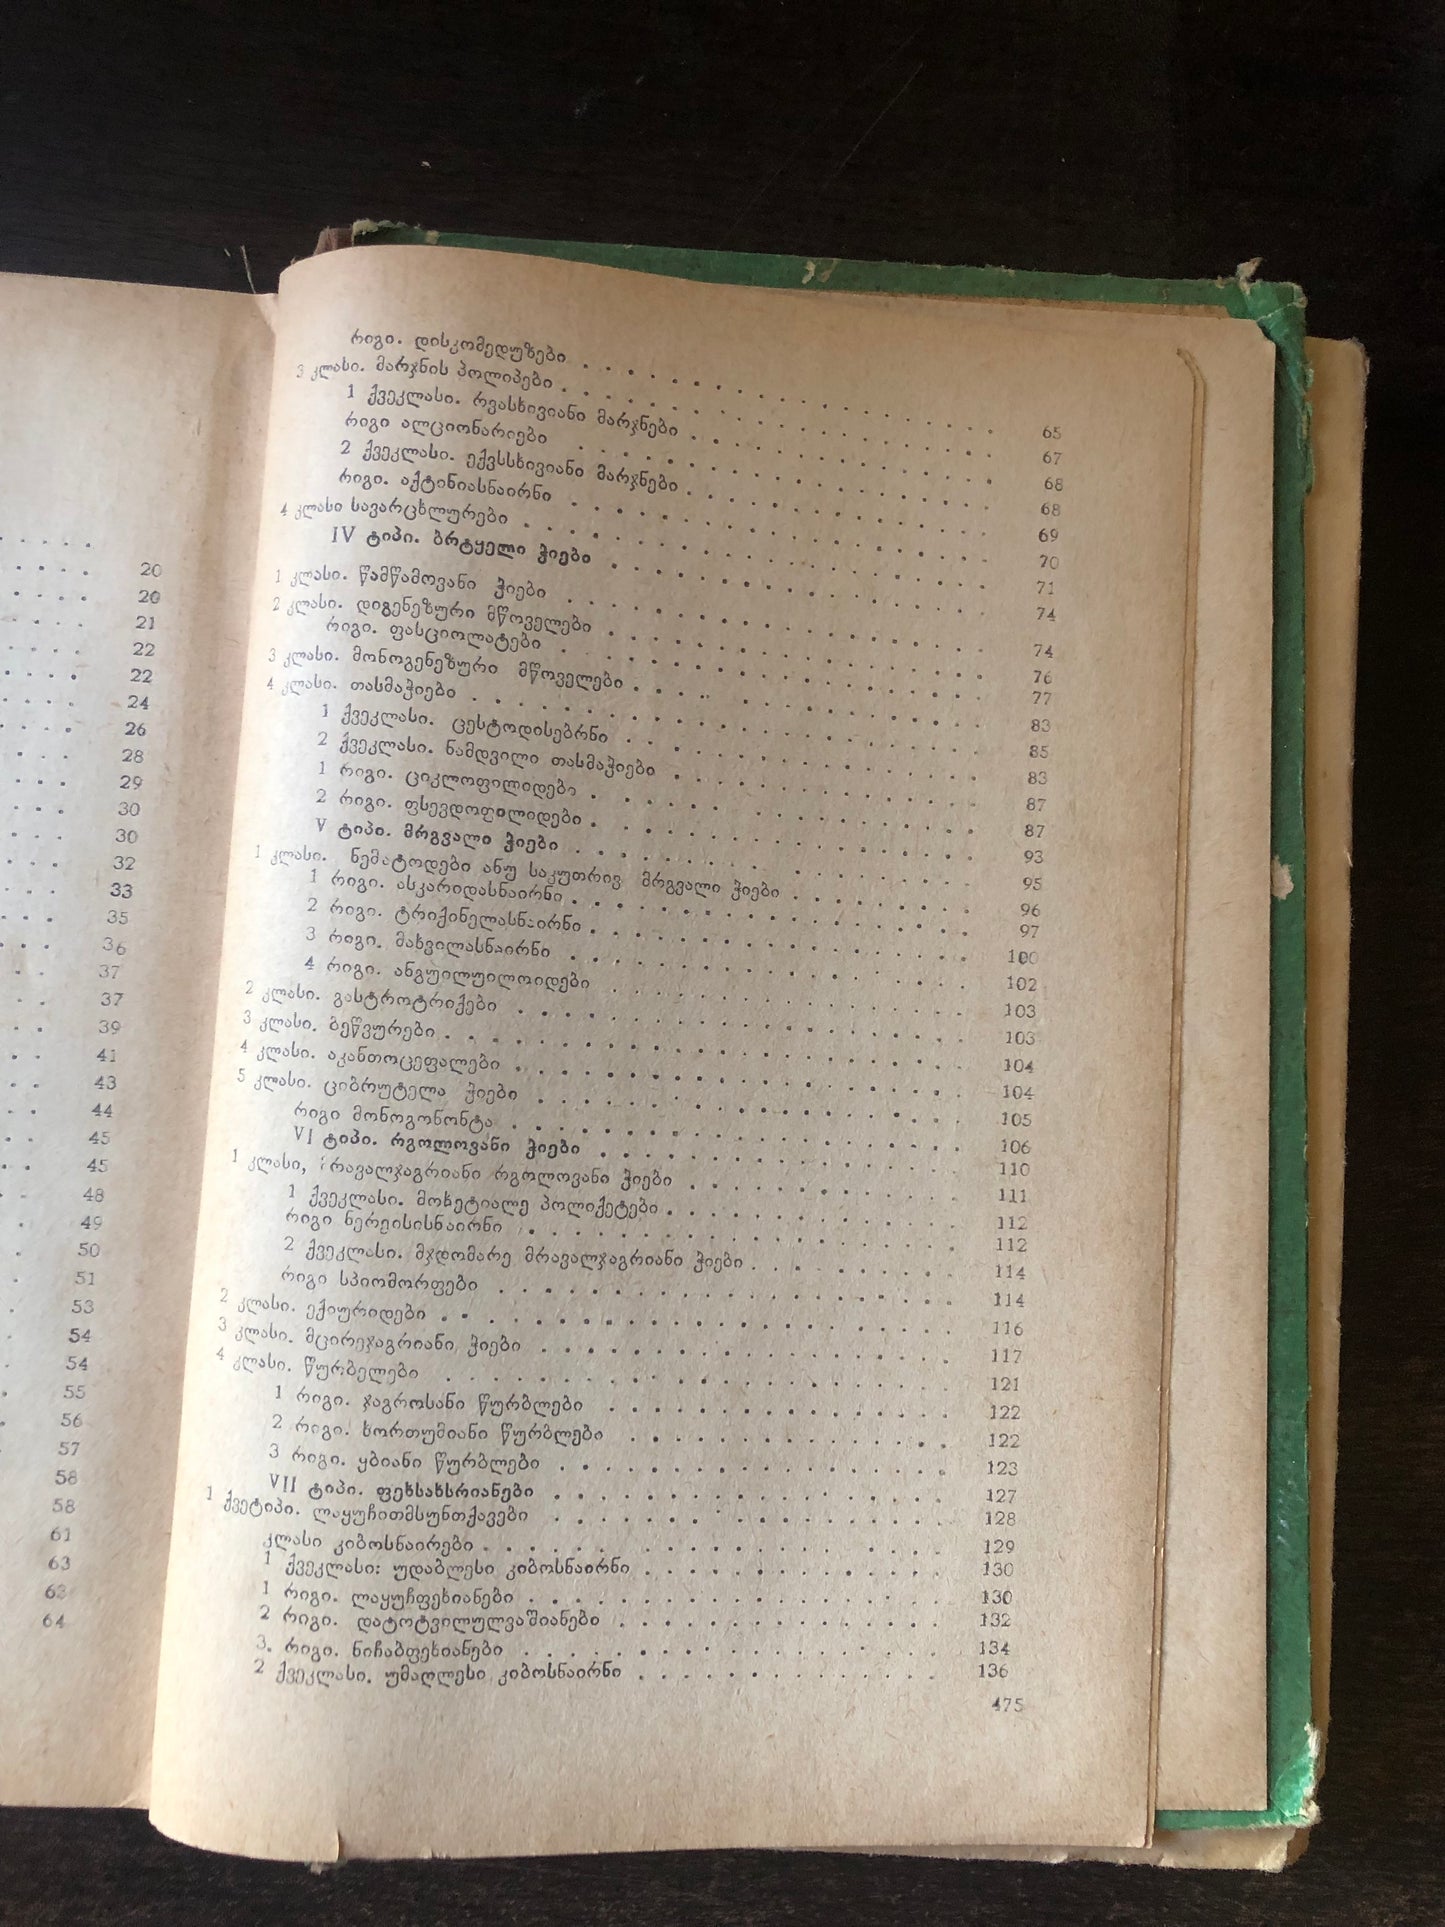 20
20
21
22
22
24
26
28
29
30
30
32
33
35
36
37
37
39
41
43
44
45
45
48
49
50
51
53
54
54
55
56
57
58
58
61
63
63
64
რიგი. დისკომედუზები . . . . . . . . . . 65
3 კლასი. მარჯნის პოლიპები . . . . . . . . . . 67
1 ქვეკლასი. რვასხივიანი მარჯნები . . . . . . . . . . 68
რიგი ალციონარიები . . . . . . . . . . 68
2 ქვეკლასი. ექვსსხივიანი მარჯნები . . . . . . . . . . 69
რიგი. აქტინიასნაირნი . . . . . . . . . . 70
4 კლასი სავარცხლურები . . . . . . . . . . 71
IV ტიპი. ბრტყელი ჭიები . . . . . . . . . . 74
1 კლასი. წამწამოვანი ჭიები . . . . . . . . . . 74
2 კლასი. დიგენეზური მწოველები . . . . . . . . . . 76
რიგი. ფასციოლატები . . . . . . . . . . 77
3 კლასი. მონოგენეზური მწოველები . . . . . . . . . . 83
4 კლასი. თასმაჭიები . . . . . . . . . . 85
1 ქვეკლასი. ცესტოდისებრნი . . . . . . . . . . 83
2 ქვეკლასი. ნამდვილი თასმაჭიები . . . . . . . . . . 87
1 რიგი. ციკლოფილიდები . . . . . . . . . . 87
2 რიგი. ფსევდოფილიდები . . . . . . . . . . 93
V ტიპი. მრგვალი ჭიები . . . . . . . . . . 95
1 კლასი. ნემატოდები ანუ საკუთრივ მრგვალი ჭიები . . . . . . . 96
1 რიგი. ასკარიდასნაირნი . . . . . . . . . . 97
2 რიგი. ტრიქინელასნაირნი . . . . . . . . . . 100
3 რიგი. მახვილასნაირნი . . . . . . . . . . 102
4 რიგი. ანგუილულოიდები . . . . . . . . . . 103
2 კლასი. გასტროტრიქები . . . . . . . . . . 103
3 კლასი. ბეწვურები . . . . . . . . . . 104
4 კლასი. აკანთოცეფალები . . . . . . . . . . 104
5 კლასი. ციბრუტელა ჭიები . . . . . . . . . . 105
რიგი მონოგონონტა . . . . . . . . . . 106
VI ტიპი. რგოლოვანი ჭიები . . . . . . . . . . 110
1 კლასი, მრავალჯაგრიანი რგოლოვანი ჭიები . . . . . . . . . . 111
1 ქვეკლასი. მოხეტიალე პოლიქეტები . . . . . . . . . . 112
რიგი ნერეისისნაირნი . . . . . . . . . . 112
2 ქვეკლასი. მჯდომარე მრავალჯაგრიანი ჭიები . . . . . . . . 114
რიგი სპიომორფები . . . . . . . . . . 114
2 კლასი. ექიურიდები . . . . . . . . . . 116
3 კლასი. მცირეჯაგრიანი ჭიები . . . . . . . . . . 117
4 კლასი. წურბელები . . . . . . . . . . 121
1 რიგი. ჯაგროსანი წურბლები . . . . . . . . . . 122
2 რიგი. ხორთუმიანი წურბლები . . . . . . . . . . 122
3 რიგი. ყბიანი წურბლები . . . . . . . . . . 123
VII ტიპი. ფეხსახსრიანები . . . . . . . . . . 127
1 ქვეტიპი. ლაყუჩითმსუნთქავები . . . . . . . . . . 128
კლასი კიბოსნაირები . . . . . . . . . . 129
1 ქვეკლასი: უდაბლესი კიბოსნაირნი . . . . . . . . . . 130
1 რიგი. ლაყუჩფეხიანები . . . . . . . . . . 130
2 რიგი. დატოტვილულვაშიანები . . . . . . . . . . 132
3. რიგი. ნიჩაბფეხიანები . . . . . . . . . . 134
2 ქვეკლასი. უმაღლესი კიბოსნაირნი . . . . . . . . . . 136
475